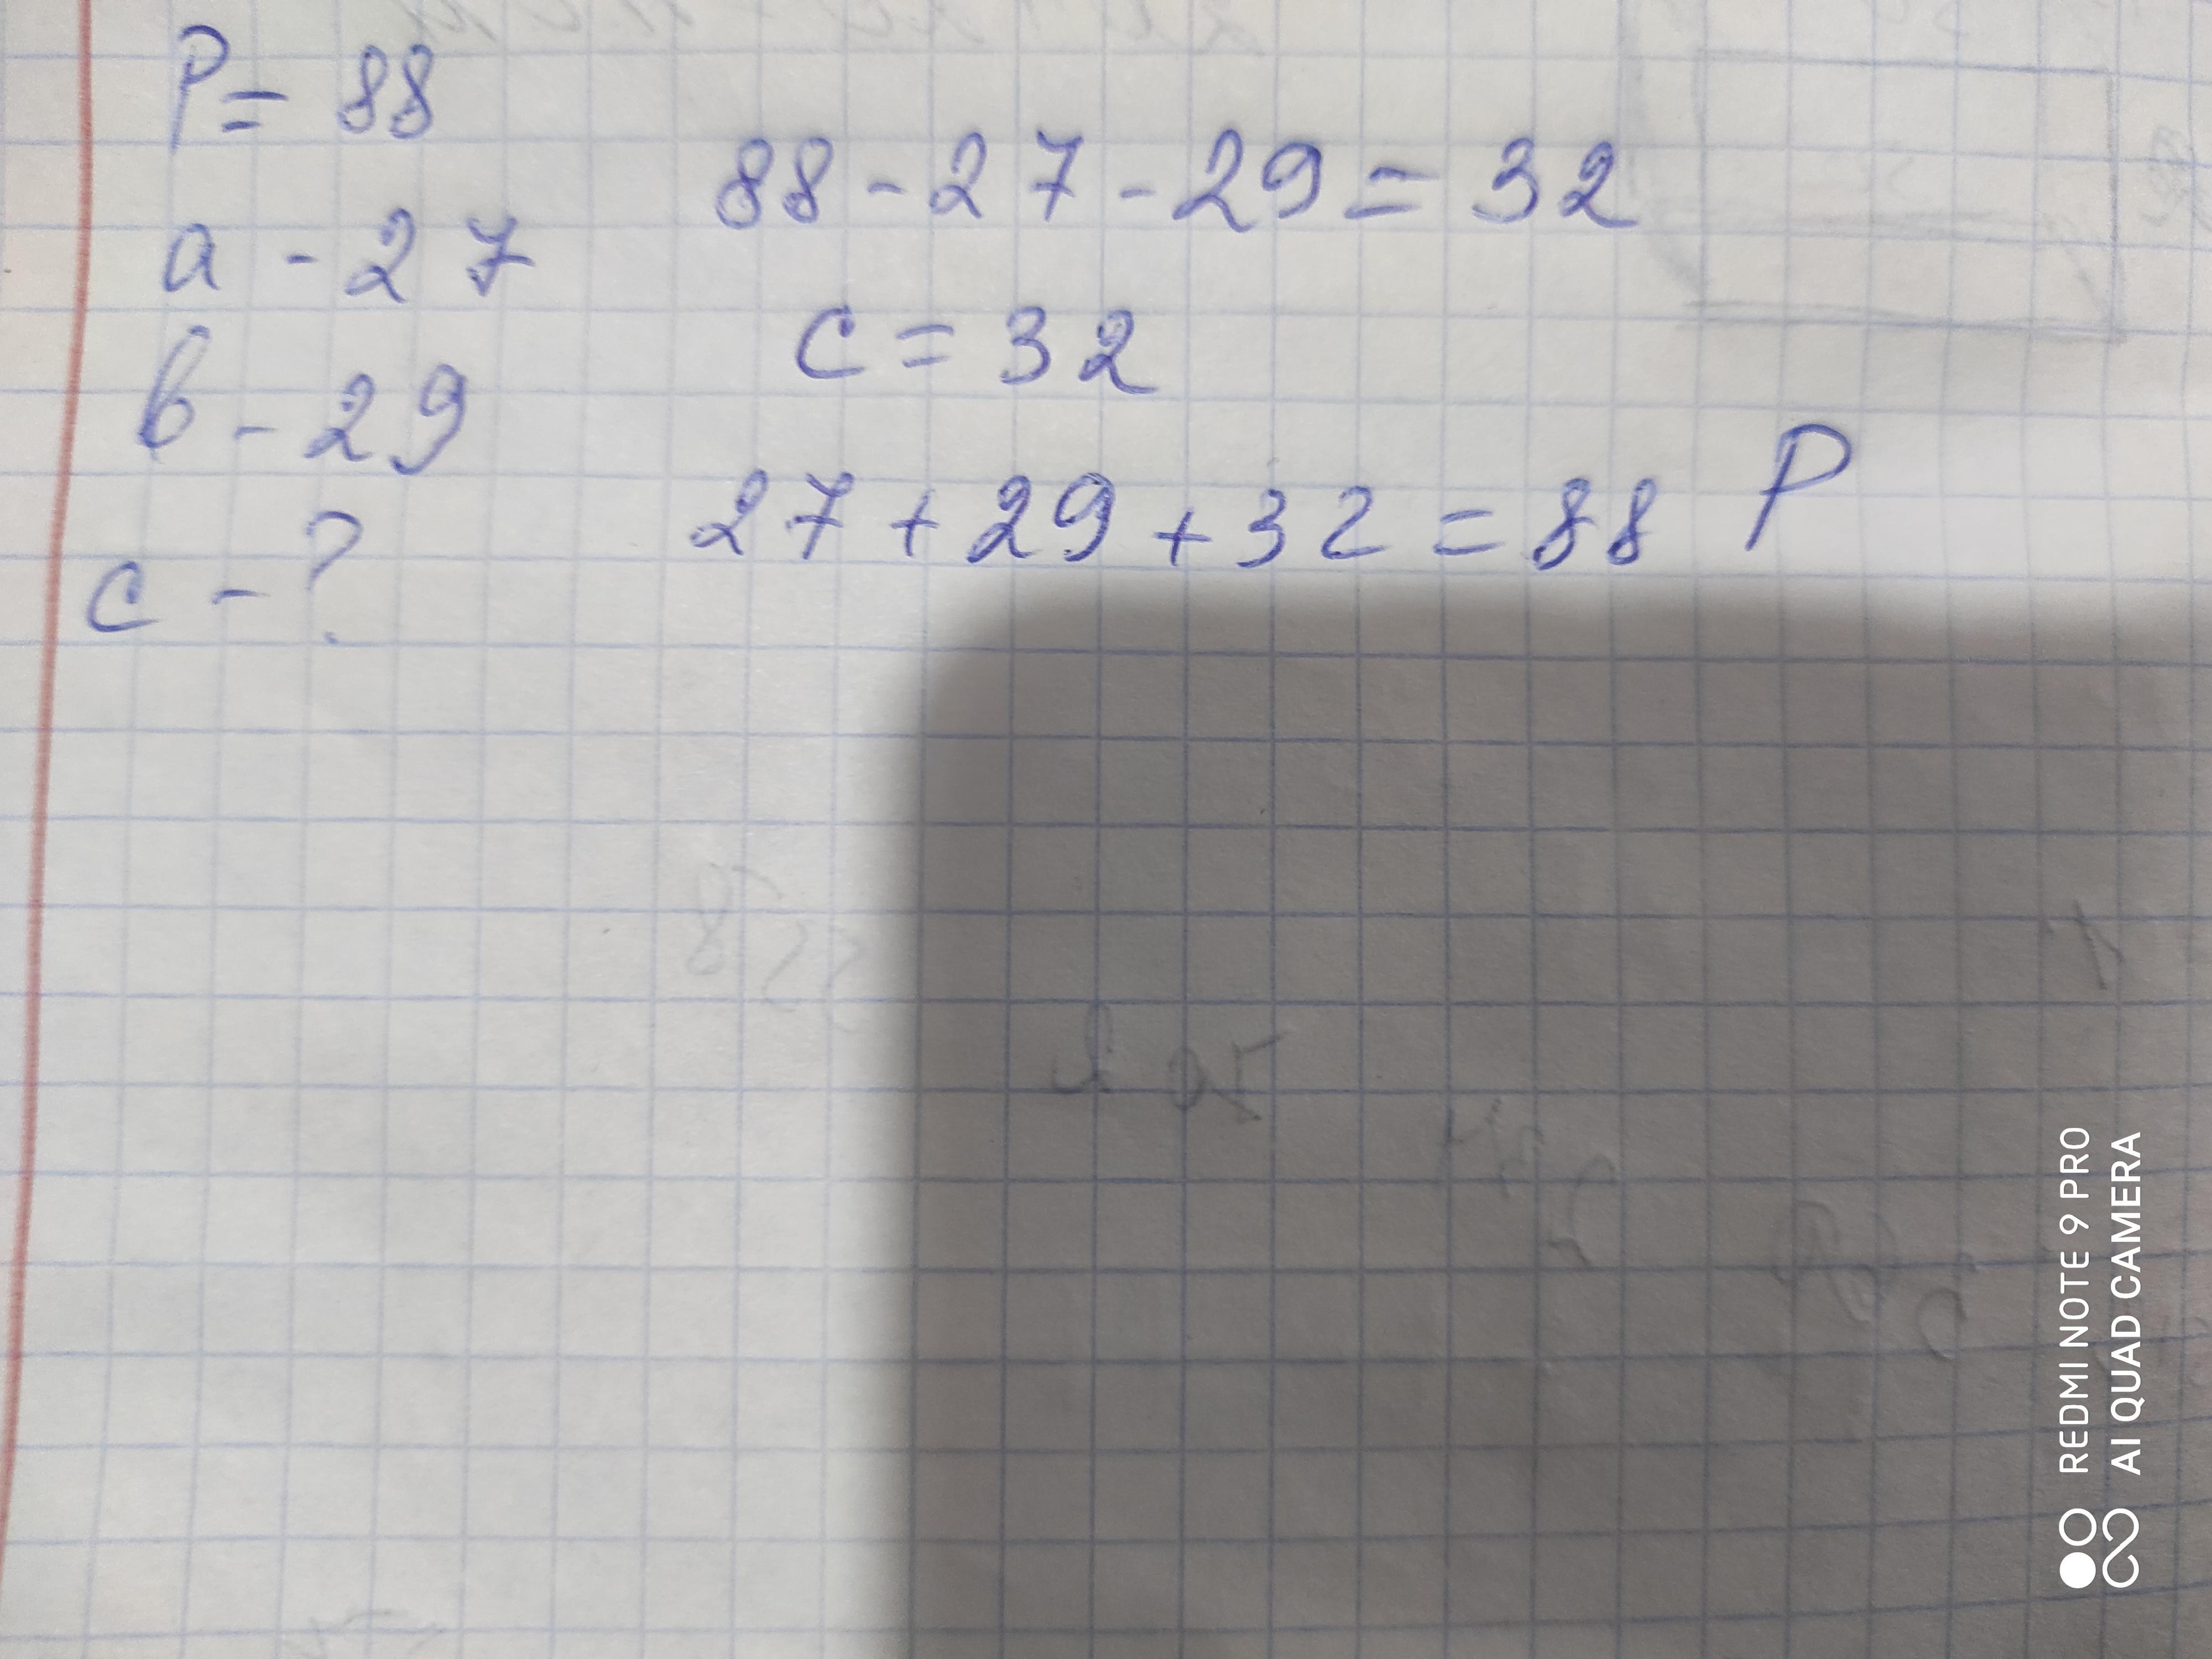 P = 88
a - 27
b - 29
c - ?
88 - 27 - 29 = 32
c = 32
27 + 29 + 32 = 88 P
REDMI NOTE 9 PRO
AI QUAD CAMERA